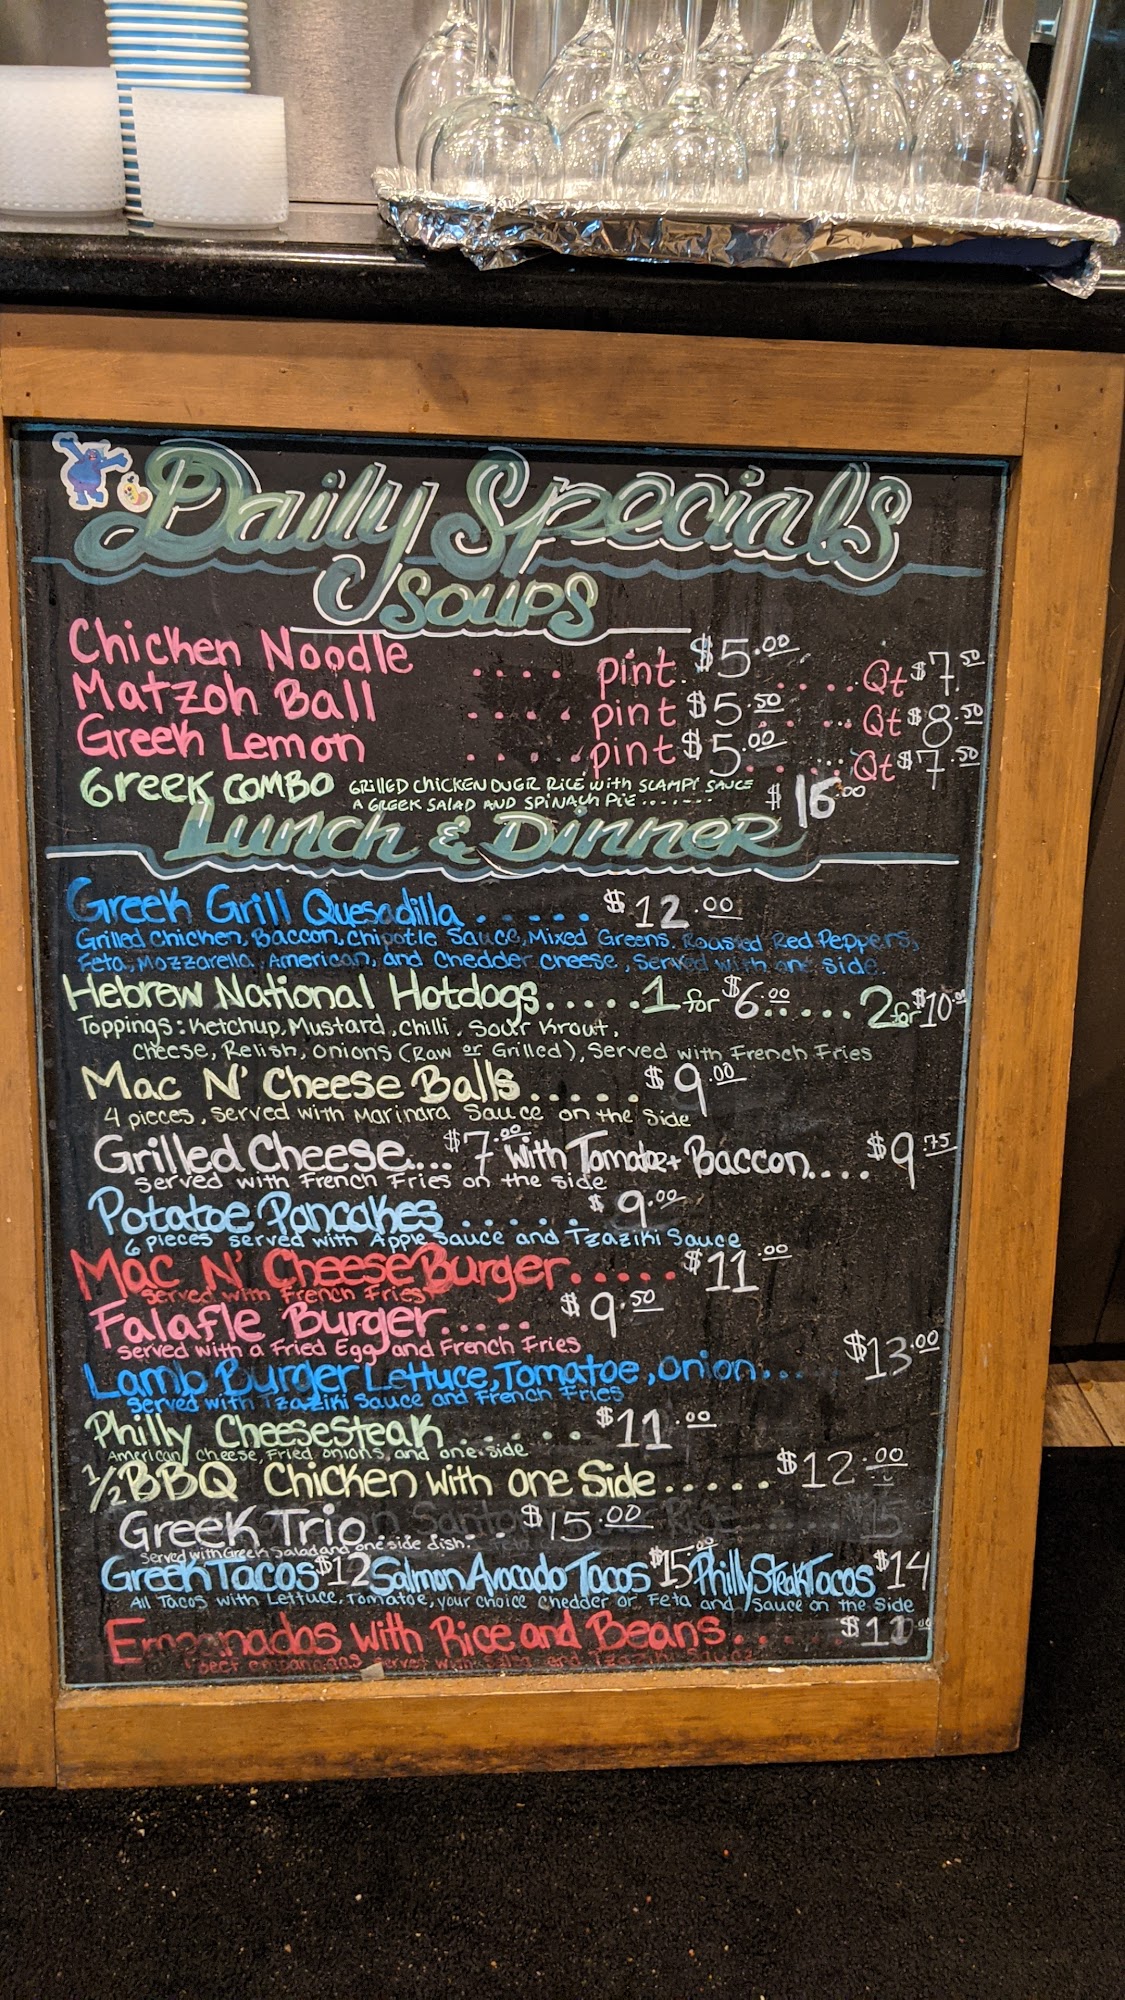 Daily Specials
SOUPS
Chicken Noodle .... pint. $5.00 ..... Qt $7.50
Matzoh Ball .... pint $5.50 .... Qt $8.50
Greek Lemon .... pint $5.00 .... Qt $7.50
Greek COMBO GRILLED CHICKEN OVER RICE with SCAMPI SAUCE
A GREEK SALAD AND SPINACH PIE ....... $16.00
Lunch & Dinner
Greek Grill Quesadilla ..... $12.00
Grilled Chicken, Baccon, Chipotle Sauce, Mixed Greens, Roasted Red Peppers,
Feta, Mozzarella, American, and Chedder Cheese, Served with one side.
Hebrew National Hotdogs.....1 for $6.00..... 2 for $10.00
Toppings: Ketchup, Mustard, Chilli, Sour Krout,
Cheese, Relish, Onions (Raw or Grilled), Served with French Fries
Mac N' Cheese Balls..... $9.00
4 pieces, Served with Marinara Sauce on the Side
Grilled Cheese.... $7.00 with Tomatoe + Baccon.... $9.75
served with French Fries on the side
Potatoe Pancakes ..... $9.00
6 pieces served with Apple Sauce and Tzaziki Sauce
Mac N' Cheese Burger..... $11.00
served with French Fries
Falafle Burger..... $9.50
served with a Fried Egg and French Fries
Lamb Burger Lettuce, Tomatoe, Onion... $13.00
served with Tzaziki Sauce and French Fries
Philly Cheesesteak ...... $11.00
American Cheese, Fried onions, and one side
1/2 BBQ Chicken with one Side..... $12.00
Greek Trio...... $15.00
served with Greek Salad and one side dish.
Greek Tacos $12 Salmon Avocado Tacos $15.00 Philly Steak Tacos $14
All Tacos with Lettuce, Tomatoe, your choice Chedder or Feta and Sauce on the Side
Empanadas with Rice and Beans......
beef empanadas served with Salsa and Tzaziki Sauce